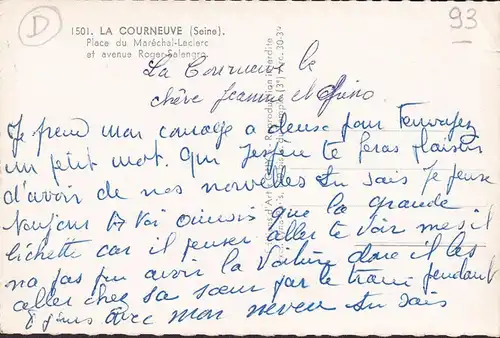 D
93
1501. LA COURNEUVE (Seine).
Place du Maréchal-Leclerc
et avenue Roger-Salengro.
La Courneuve le
chère Jeanine et Gino
Je prend mon courage a deuse pour t'envoyez
un petit mot. Qui j'espère te feras plaisir
d'avoir de nos nouvelles tu sais Je pense
toujours à toi ainsis que la grande
bichette car il penser aller te voir mes il
na pas peu avoir la voiture donc il les
aller chez sa sœur par le train pendant
8 jours avec mon neveu tu sais
Reproduction interdite